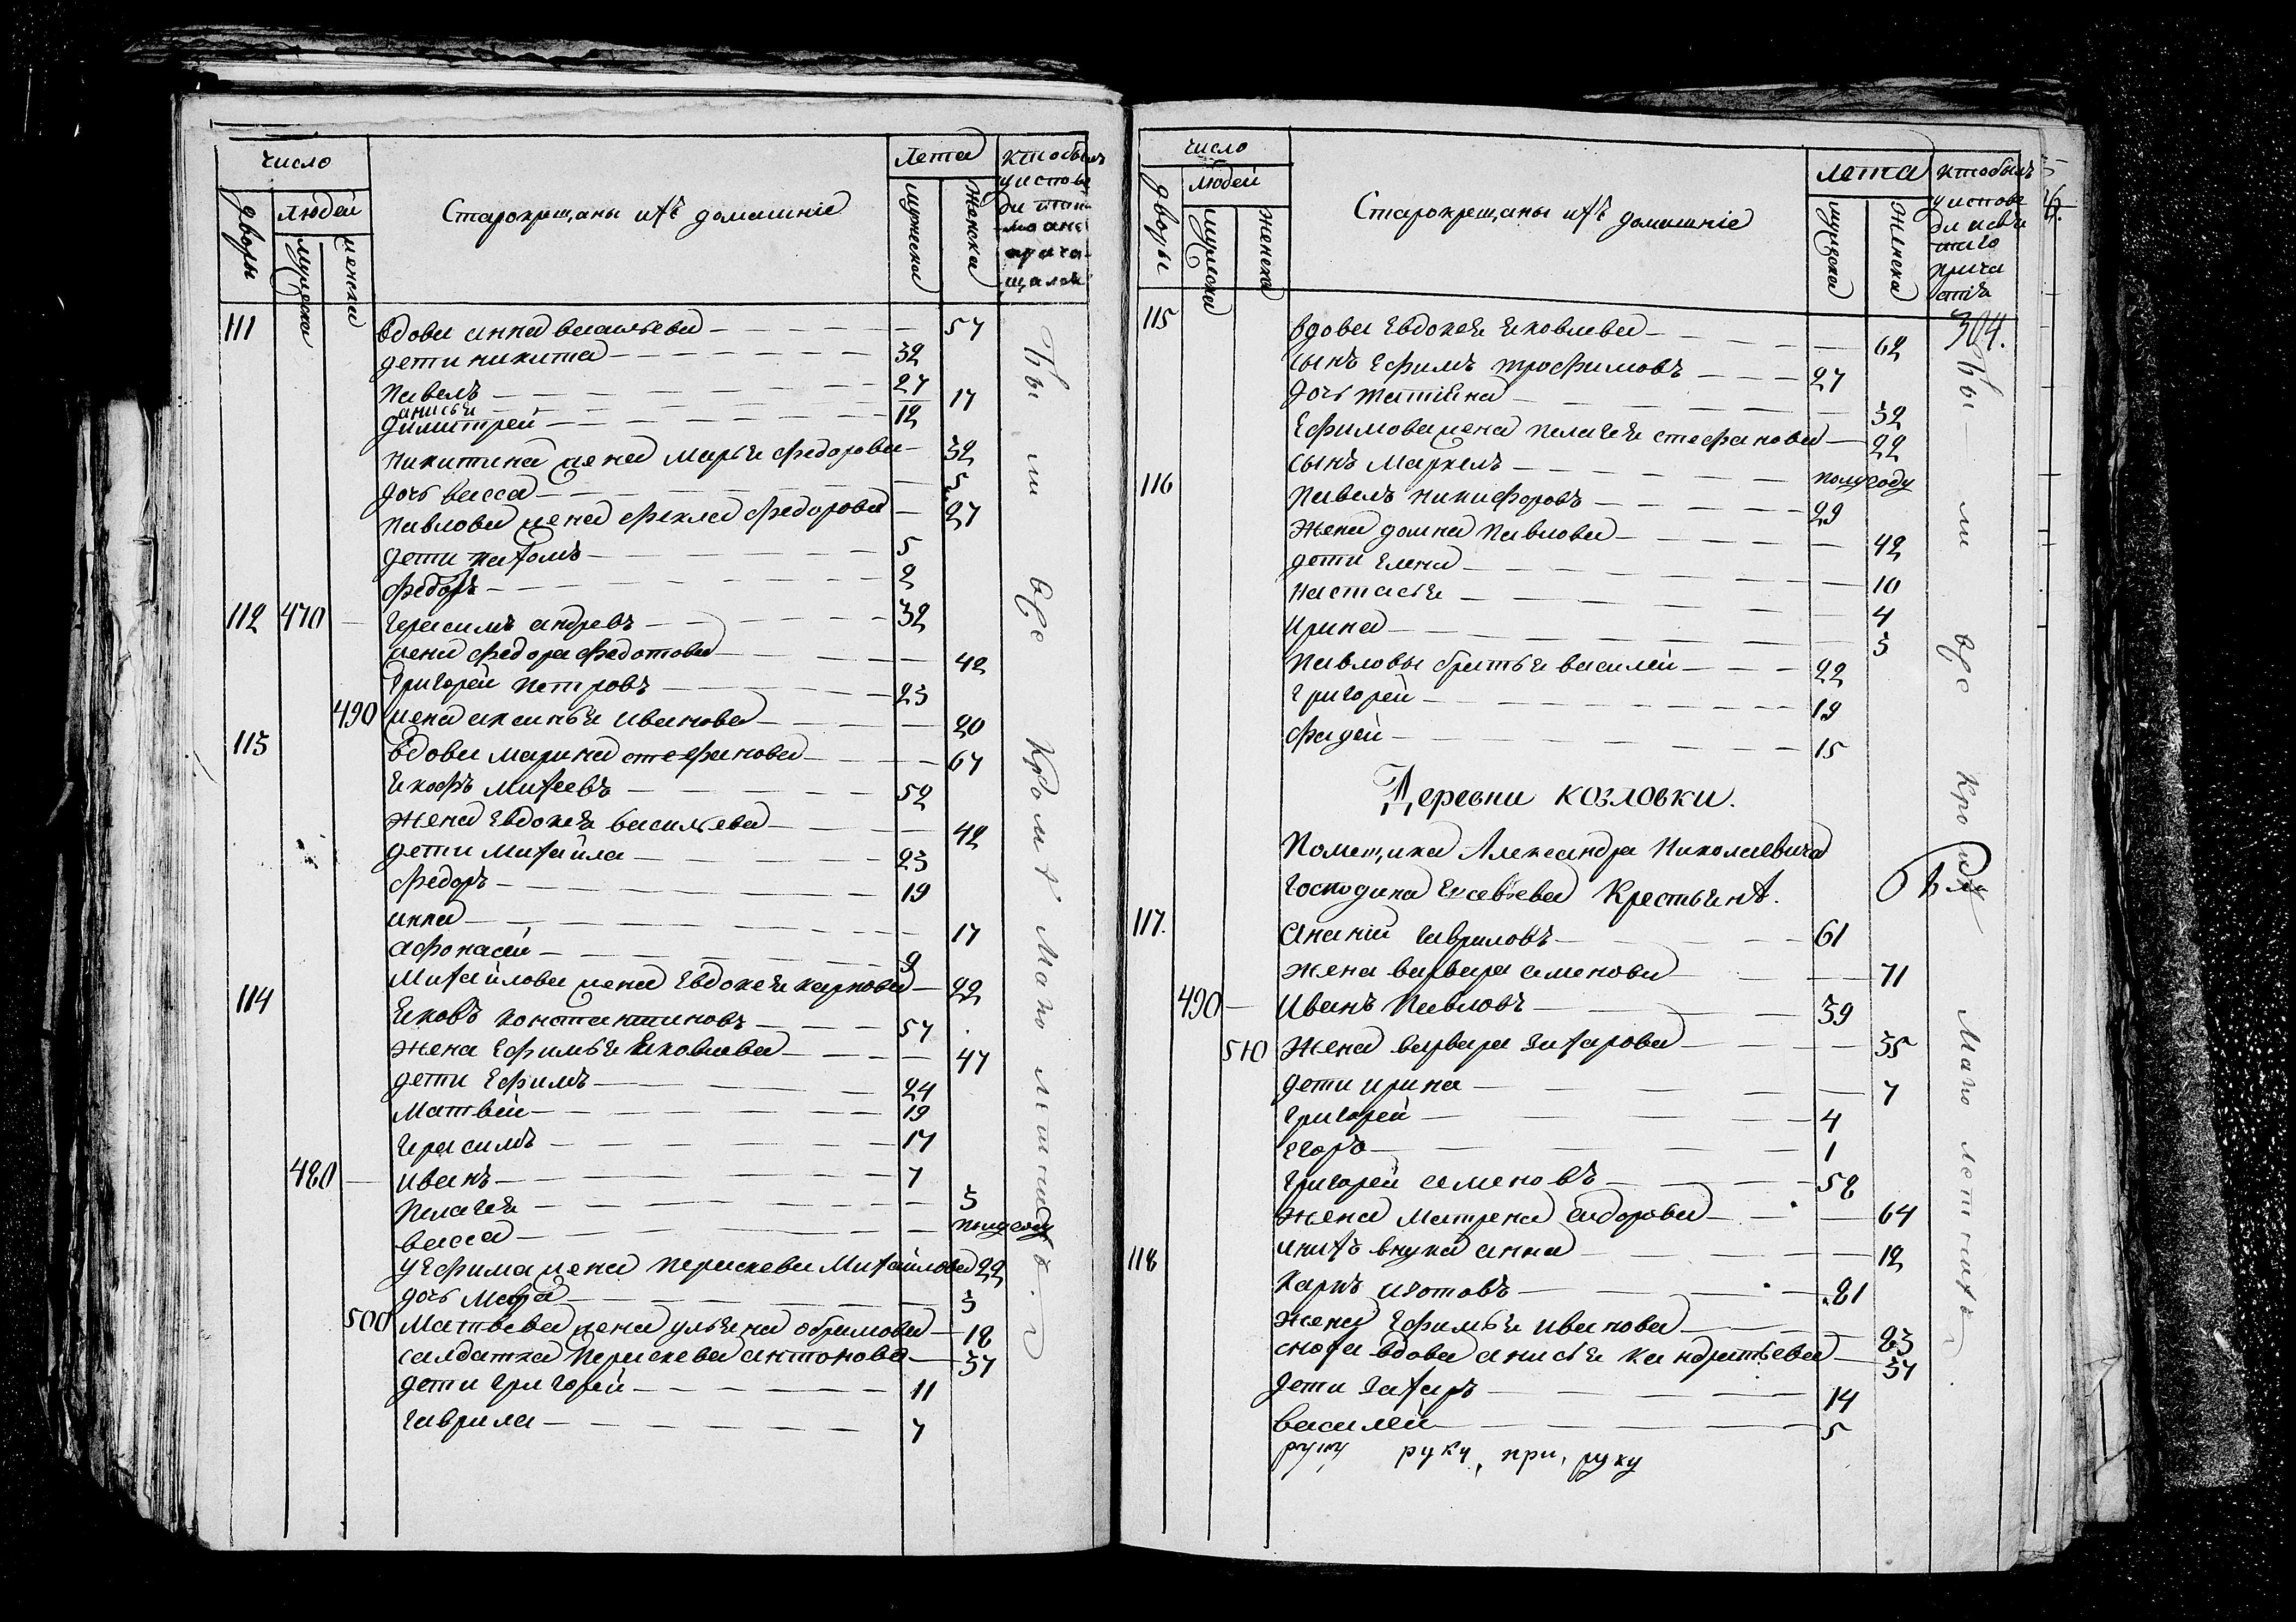 число
дворы
людей
мужеска
женска
Старокрещаны ихъ домашніе
Лета
мужеска
женска
111 вдова анна васильева 57
дети никита 32
Павелъ 27
анисья 17
димитрей 12
Никитина жена марья федорова 32
дочь васса 5
Павлова жена фекла федорова 27
дети пахомъ 5
федоръ 2
112 470 Герасимъ андревъ 32
жена федора федотова 42
Григорей петровъ 23
490 жена аксинья иванова 20
113 вдова марина стефанова 67
Якофъ михеевъ 52
жена Евдокея васильева 42
дети михайла 23
федоръ 19
анна 17
афонасей 9
Михайлова жена Евдокея карпова 22
114 Яковъ константиновъ 57
жена Ефимья Яковлева 47
дети Ефимъ 24
Матвей 19
герасимъ 17
480 иванъ 7
Пелагея 3
васса полугоду
у Ефима жена Перасковья Михайлова 22
дочь Мавра 3
500 Матвева жена ульяна абрамова 18
салдатка Параскева антонова 37
дети григорей 11
гаврила 7
Бы ли все Кромх Мало летнихъ
число
дворы
людей
мужеска
женска
Старокрещаны ихъ домашніе
Лета
мужеска
женска
кто былъ
у испове
304.
115 вдова Евдокея Яковлева 62
сынъ Ефимъ трофимовъ 27
дочь татіяна 32
Ефимова жена пелагея стефанова 22
сынъ Маркелъ полугоду
116 Павелъ никифоровъ 29
Жена домна Павлова 42
дети Елена 10
настасья 4
Ирина 3
Павловы братья василей 22
григорей 19
фадей 15
Деревни козловки.
Помещика Александра Николаевича
Господина Евсевьева Крестьянъ.
117. Ананій гавриловъ 61
жена варвара семенова 71
490 Иванъ Павловъ 39
510 Жена варвара захарова 35
дети ирина 7
григорей 4
егоръ 1
григорей семеновъ 58
жена матрена сидорова 64
у нихъ внука анна 12
118 Карпъ изотовъ 81
жена Ефимья иванова 83
сноха вдова анисья кандратьева 37
дети захаръ 14
василей 5
руку руку, при, руку
Бы ли все Кромх Мало летнихъ